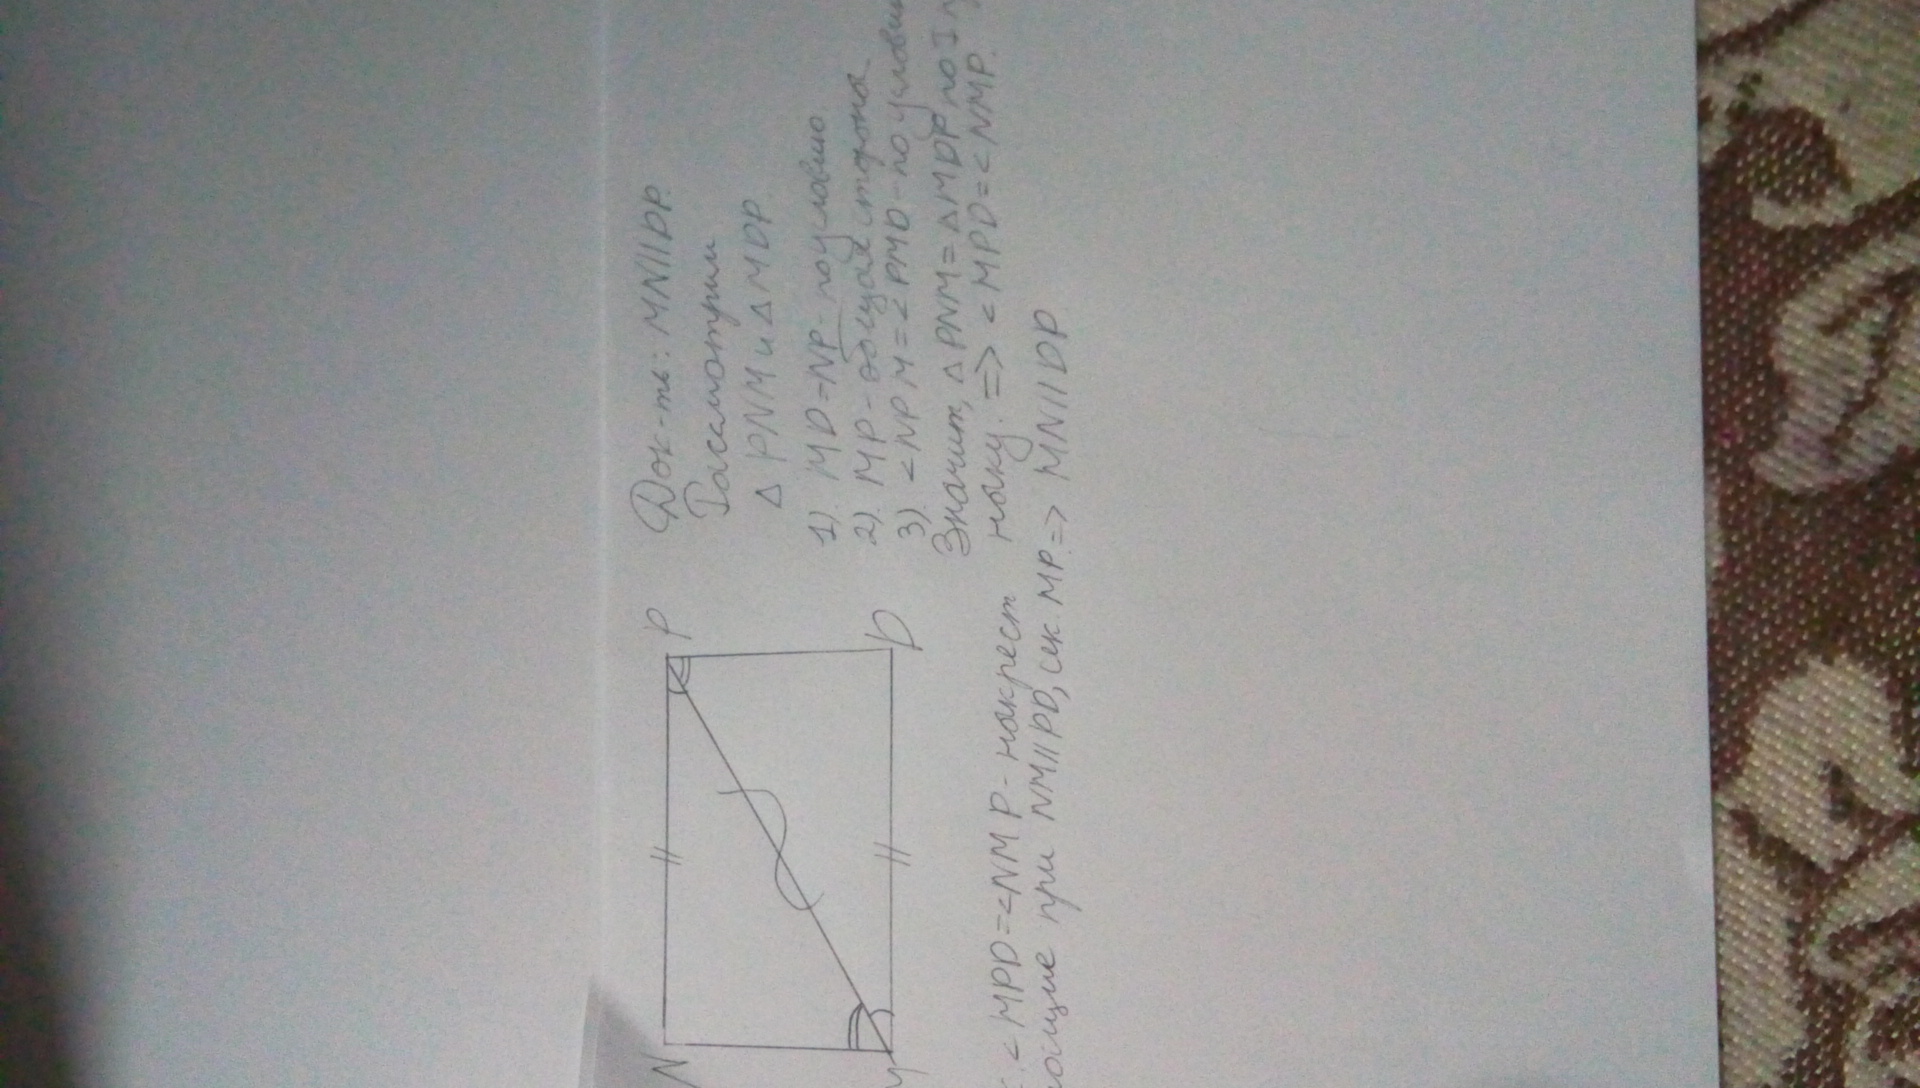 N
P
D
Док-ть: MN||DP.
Рассмотрим
△ PNM и △ MDP.
1). MD=NP- по условию.
2). MP- общая сторона
3). <NPM=<PMD-по условию
Значит, △ PNM=△ MDP по I
наку. => <MPD=<NMP.
<MPD=<NMP- накрест
при NM||PD, сек. MP.=> MN||DP